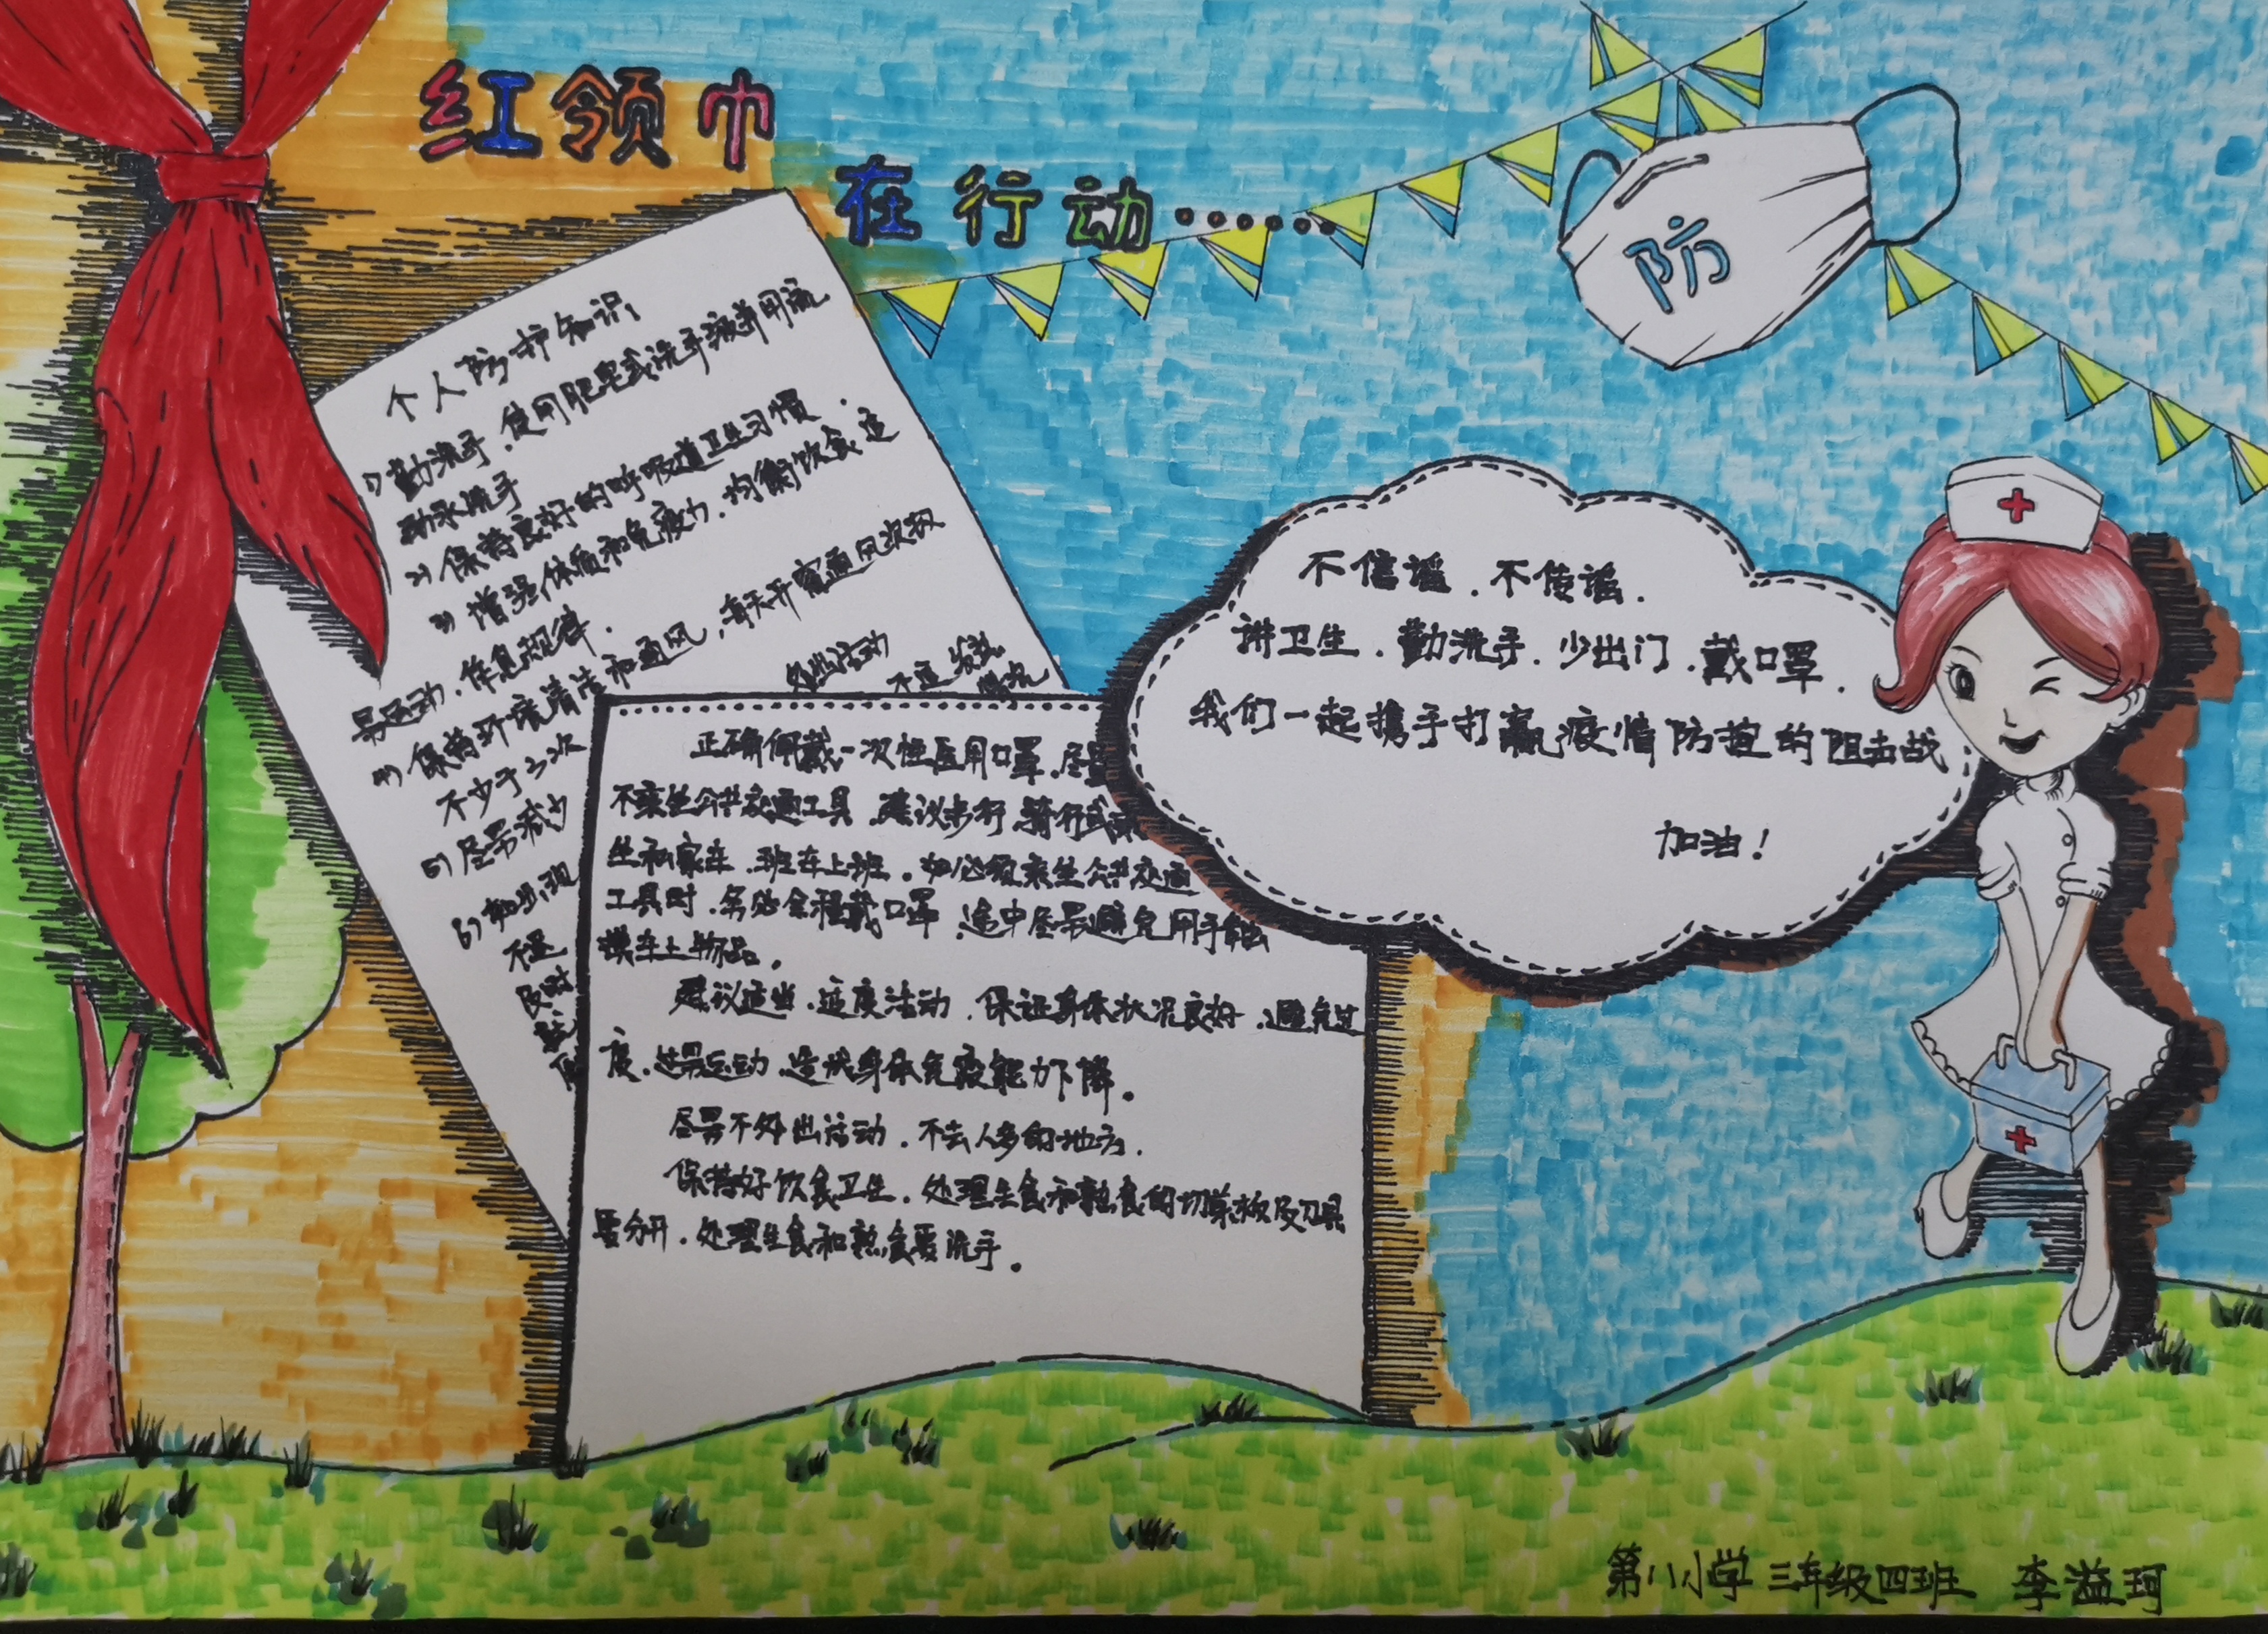 红领巾
在行动……
防
个人防护知识
1) 勤洗手，使用肥皂或洗手液并用流
动水洗手
2) 保持良好的呼吸道卫生习惯．
3) 增强体质和免疫力，均衡饮食、适
量运动，作息规律．
4) 保持环境清洁和通风，每天开窗通风次数
不少于3次
5) 尽量减少
外出活动
6) 如出现
不适
及时
不适 发热
正确佩戴一次性医用口罩，尽量
不乘坐公共交通工具，建议步行、骑行或乘
坐私家车、班车上班。如必须乘坐公共交通
工具时，务必全程戴口罩，途中尽量避免用手触
摸车上物品。
建议适当、适度活动，保证身体状况良好，避免过
度、过量运动，造成身体免疫能力下降。
尽量不外出活动，不去人多的地方．
保持好饮食卫生，处理生食和熟食的切菜板及刀具
要分开，处理生食和熟食要洗手。
不信谣，不传谣．
讲卫生．勤洗手．少出门．戴口罩．
我们一起携手打赢疫情防控的阻击战
加油！
第八小学 三年级四班 李溢珂